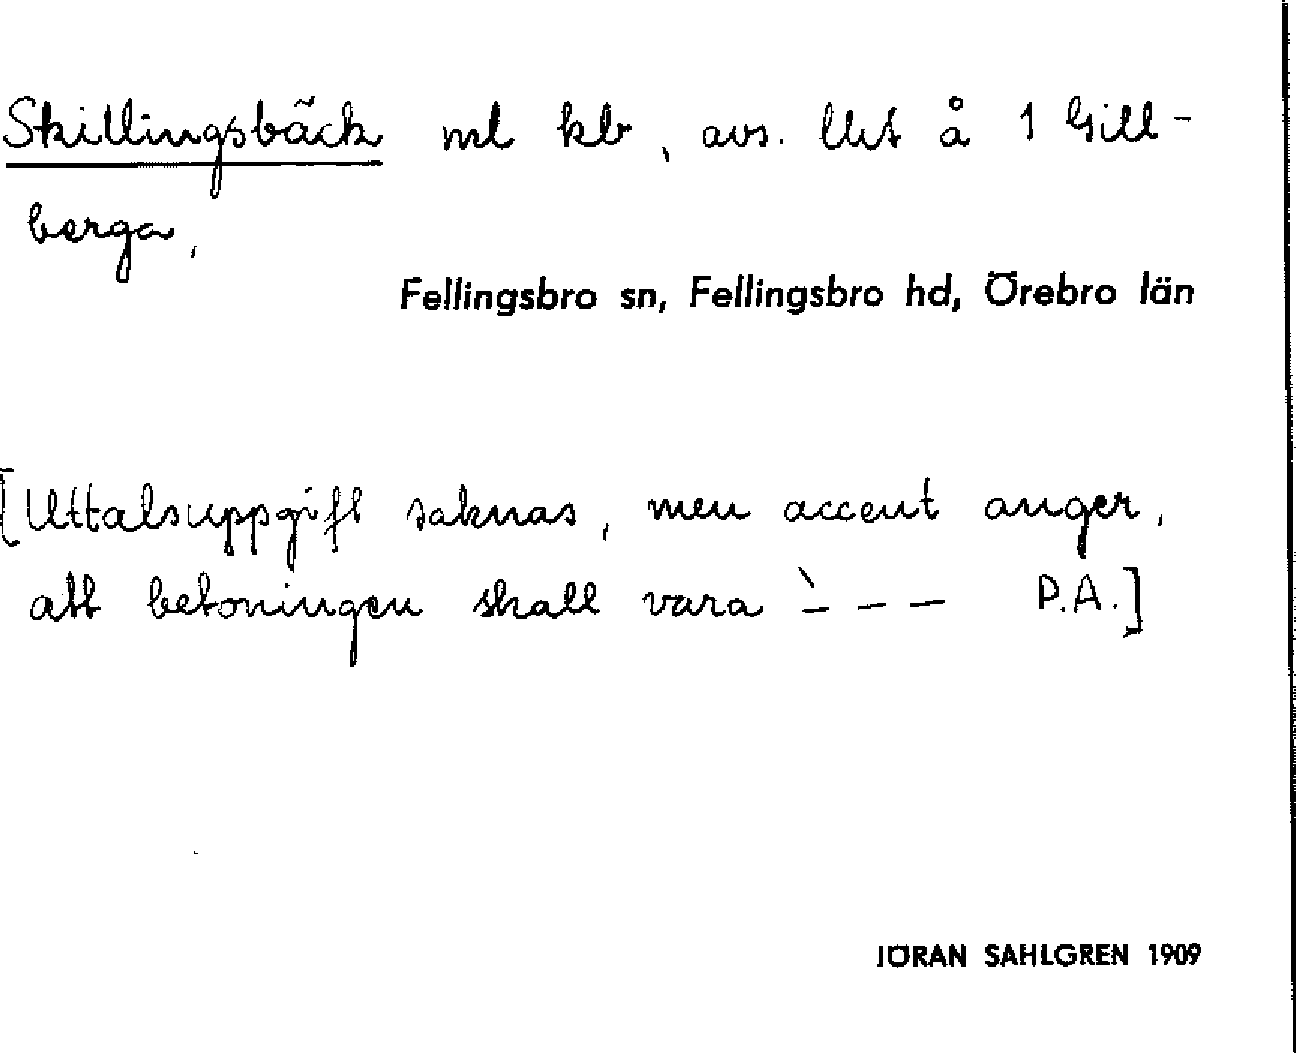 Skillingsbäck ml klv, avs. Utt å 1 Gill-
berga,
Fellingsbro sn, Fellingsbro hd, Örebro län
[Uttalsuppgift saknas, men accent anger,
att betoningen skall vara ˋ– – – P.A.]
JÖRAN SAHLGREN 1909